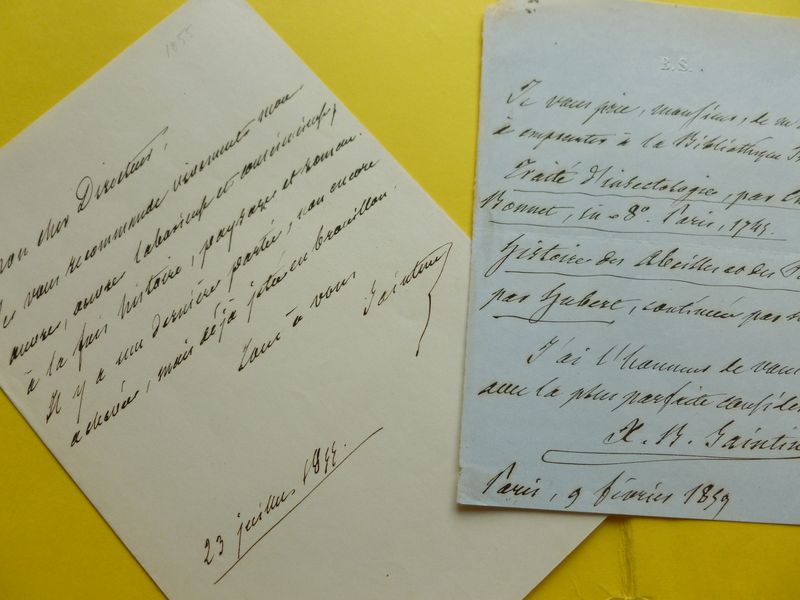 1855
mon cher Directeur,
Je vous recommande vivement mon
œuvre, œuvre laborieuse et consciencieuse,
à la fois histoire, paysage et roman.
Il y a une dernière partie, non encore
achevée, mais déjà jetée en brouillon.
Tout à vous
Saintine
23 juillet 1855.
E.S.
Je vous prie, monsieur, de
à emprunter à la Bibliothèque
Traité d'insectologie, par
Bonnet, in-8°. Paris, 1745.
Histoire des Abeilles et des
par Huber, continuée par
J'ai l'honneur de vous
avec la plus parfaite
X. B. Saintin
Paris, 9 février 1859